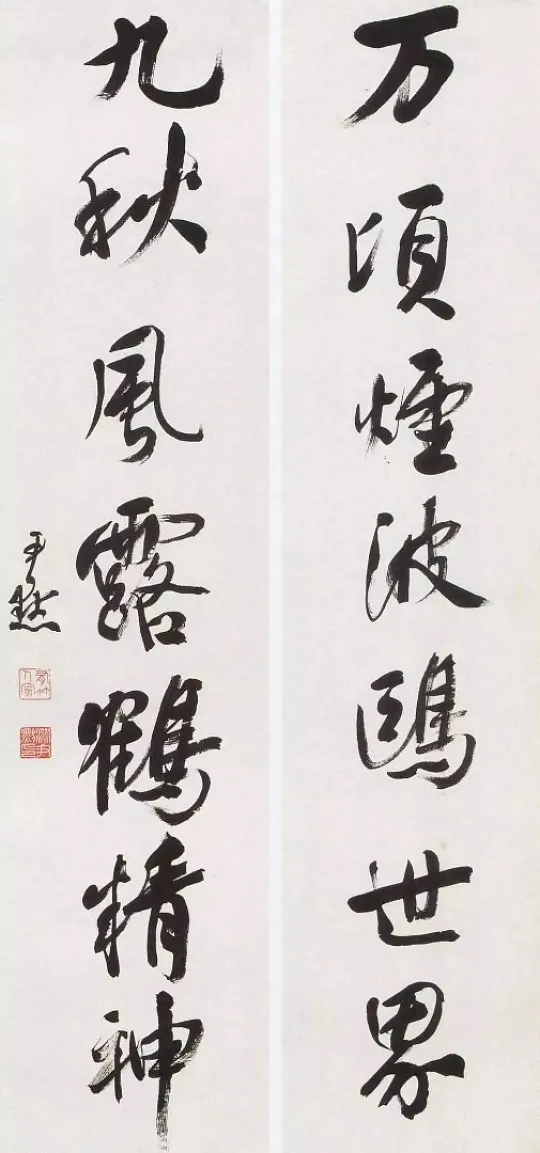 万頃煙波鷗世界
九秋風露鶴精神
尹默